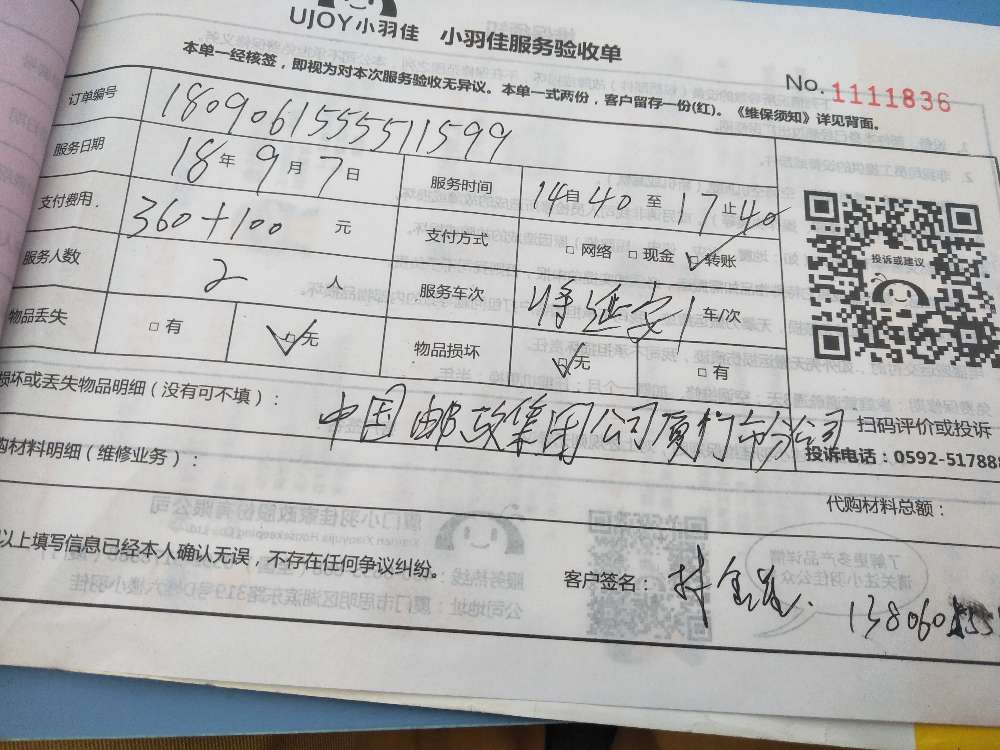 UJOY小羽佳 小羽佳服务验收单
本单一经核签，即视为对本次服务验收无异议。本单一式两份，客户留存一份(红)。《维保须知》详见背面。
No. 1111836
订单编号 180906155511599
服务日期 18年9月7日 服务时间 14自40至17止40
支付费用 360+100 元 支付方式 □网络 □现金 □转账
服务人数 2 人 服务车次 1 车/次
物品丢失 □有 □无 物品损坏 □无 □有
损坏或丢失物品明细（没有可不填）：
中国邮政集团公司厦门市分公司
投诉或建议
扫码评价或投诉
投诉电话：0592-517888
购材料明细（维修业务）：
代购材料总额：
以上填写信息已经本人确认无误，不存在任何争议纠纷。
客户签名： 138060